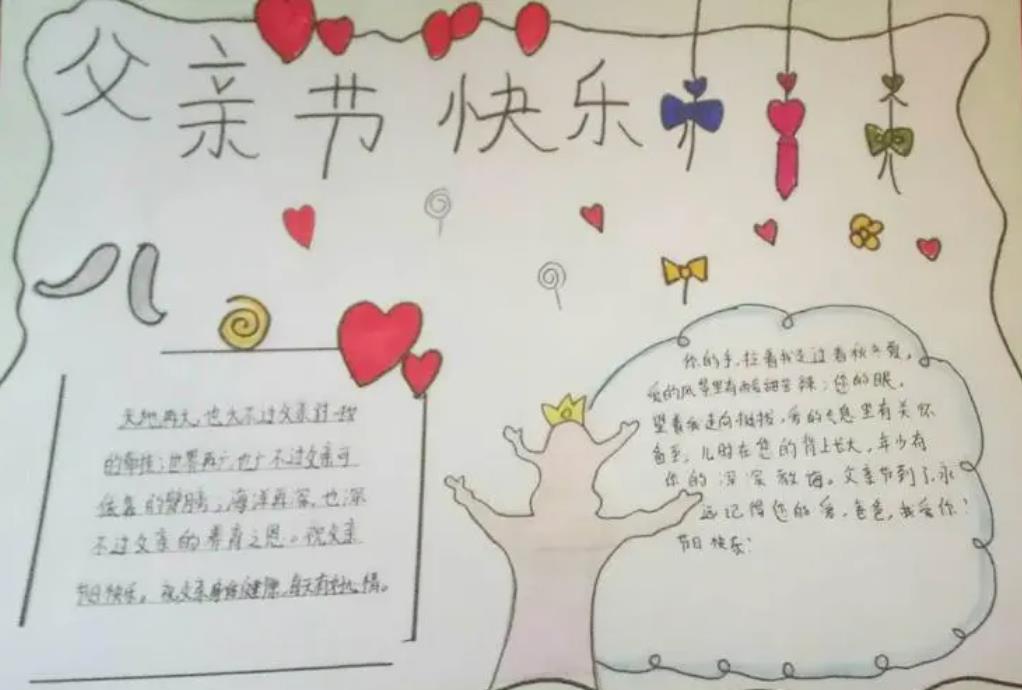 父亲节快乐
天地再大,也大不过父亲对一切
的牵挂;世界再广,也广不过父亲可
依靠的臂膀;海洋再深,也深
不过父亲的养育之恩。祝父亲
节日快乐。祝父亲身体健康,每天有好心情。
你的手,拉着我走过春秋冬夏,
爱的风华里有酸甜苦辣;您的眼,
望着我走向挺拔,爱的气息里有关怀
备至,儿时在您的背上长大,年少有
你的深深教诲。父亲节到了,永
远记得您的爱,爸爸,我爱你!
节日快乐!